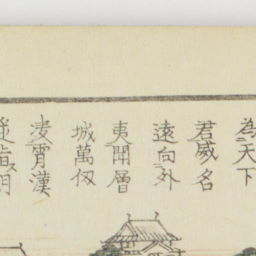 為天下
君威名
遠向外
夷開層
城萬仭
凌霄漢